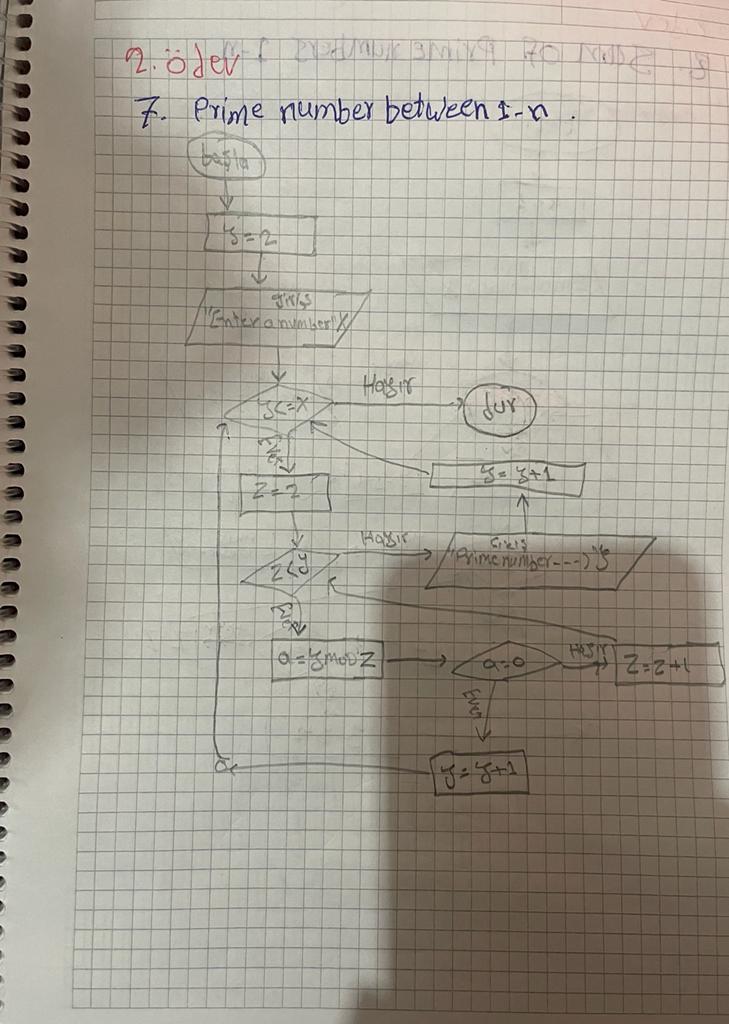 2. ödev
7. Prime number between 1-n .
başla
y=2
giriş
"Enter a number" X
y<=x
Hayır
dur
Evet
y=y+1
z=2
Hayır
çıkış
"Prime number---)" y
z<y
Evet
a=y mod z
a=0
Hayır
z=z+1
Evet
y=y+1